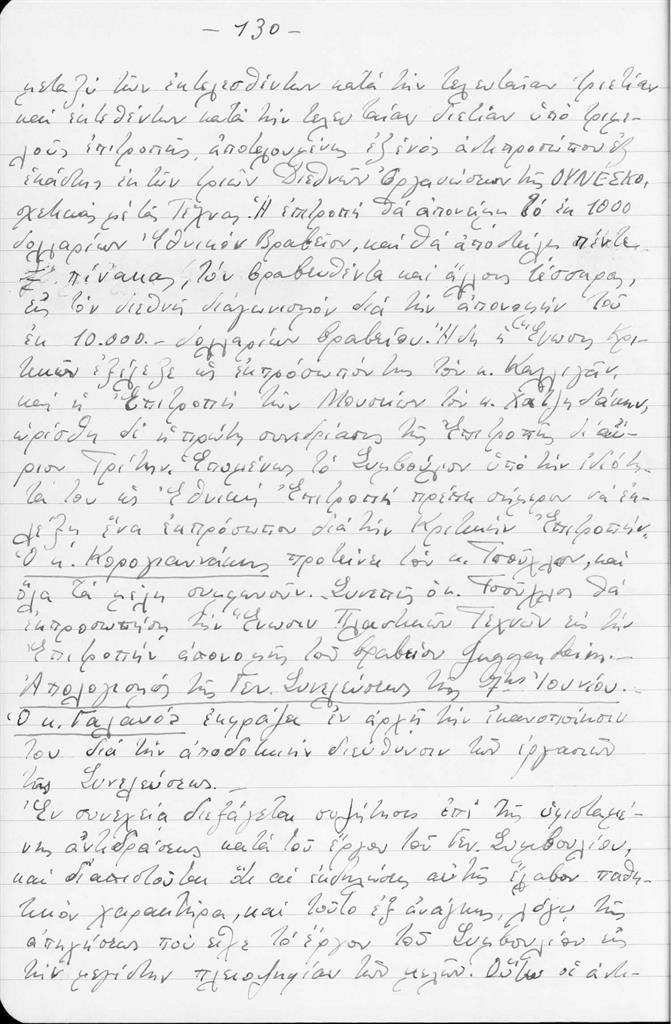 - 130 -
μεταξύ τῶν ἐκτελεσθέντων κατά τήν τελευταίαν τριετίαν
καί ἐκτεθέντων κατά τήν τελευταίαν διετίαν ὑπό τριμε-
λοῦς ἐπιτροπῆς, ἀποτελουμένης ἐξ ἑνός ἀντιπροσώπου ἐξ
ἑκάστης ἐκ τῶν τριῶν Διεθνῶν Ὀργανώσεων τῆς ΟΥΝΕΣΚΟ,
σχετικῶς μέ τάς Τέχνας. Ἡ ἐπιτροπή θά ἀπονείμῃ τό ἐκ 1000
δολλαρίων Ἐθνικόν Βραβεῖον, καί θά ἀποστείλῃ πέντε
πίνακας, τόν βραβευθέντα καί ἄλλους τέσσαρας,
εἰς τόν διεθνῆ διαγωνισμόν διά τήν ἀπονομήν τοῦ
ἐκ 10.000.- δολλαρίων βραβείου. Ἤδη ἡ Ἕνωσις Κρι-
τικῶν ἐξέλεξε ὡς ἐκπρόσωπόν της τόν κ. Καλλιγᾶν,
καί ἡ Ἐπιτροπή τῶν Μουσείων τόν κ. Χατζηδάκην,
ὡρίσθη δέ ἡ πρώτη συνεδρίασις τῆς Ἐπιτροπῆς δι' αὔ-
ριον Τρίτην. Ἑπομένως τό Συμβούλιον ὑπό τήν ἰδιότη-
τά του ὡς Ἐθνική Ἐπιτροπή πρέπει σήμερον νά ἐκ-
λέξῃ ἕνα ἐκπρόσωπον διά τήν Κριτικήν Ἐπιτροπήν.
Ὁ κ. Κορογιαννάκης προτείνει τόν κ. Τσοῦχλον, καί
ὅλα τά μέλη συμφωνοῦν. Συνεπῶς ὁ κ. Τσοῦχλος θά
ἐκπροσωπήσῃ τήν Ἕνωσιν Πλαστικῶν Τεχνῶν εἰς τήν
Ἐπιτροπήν ἀπονομῆς τοῦ βραβείου Guggenheim.-
Ἀπολογισμός τῆς Γεν. Συνελεύσεως τῆς 7ης Ἰουνίου.-
Ὁ κ. Γαλανός ἐκφράζει ἐν ἀρχῇ τήν ἱκανοποίησίν
του διά τήν ἀποδοτικήν διεύθυνσιν τῶν ἐργασιῶν
τῆς Συνελεύσεως.-
Ἐν συνεχείᾳ διεξάγεται συζήτησις ἐπί τῆς ὑφισταμέ-
νης ἀντιδράσεως κατά τοῦ ἔργου τοῦ Γεν. Συμβουλίου,
καί διαπιστοῦται ὅτι αἱ ἐκδηλώσεις αὐτῆς ἔλαβον παθη-
τικόν χαρακτῆρα, καί τοῦτο ἐξ ἀνάγκης, λόγῳ τῆς
ἀπηχήσεως πού εἶχε τό ἔργον τοῦ Συμβουλίου εἰς
τήν μεγίστην πλειοψηφίαν τῶν μελῶν. Οὕτω οἱ ἀντι-